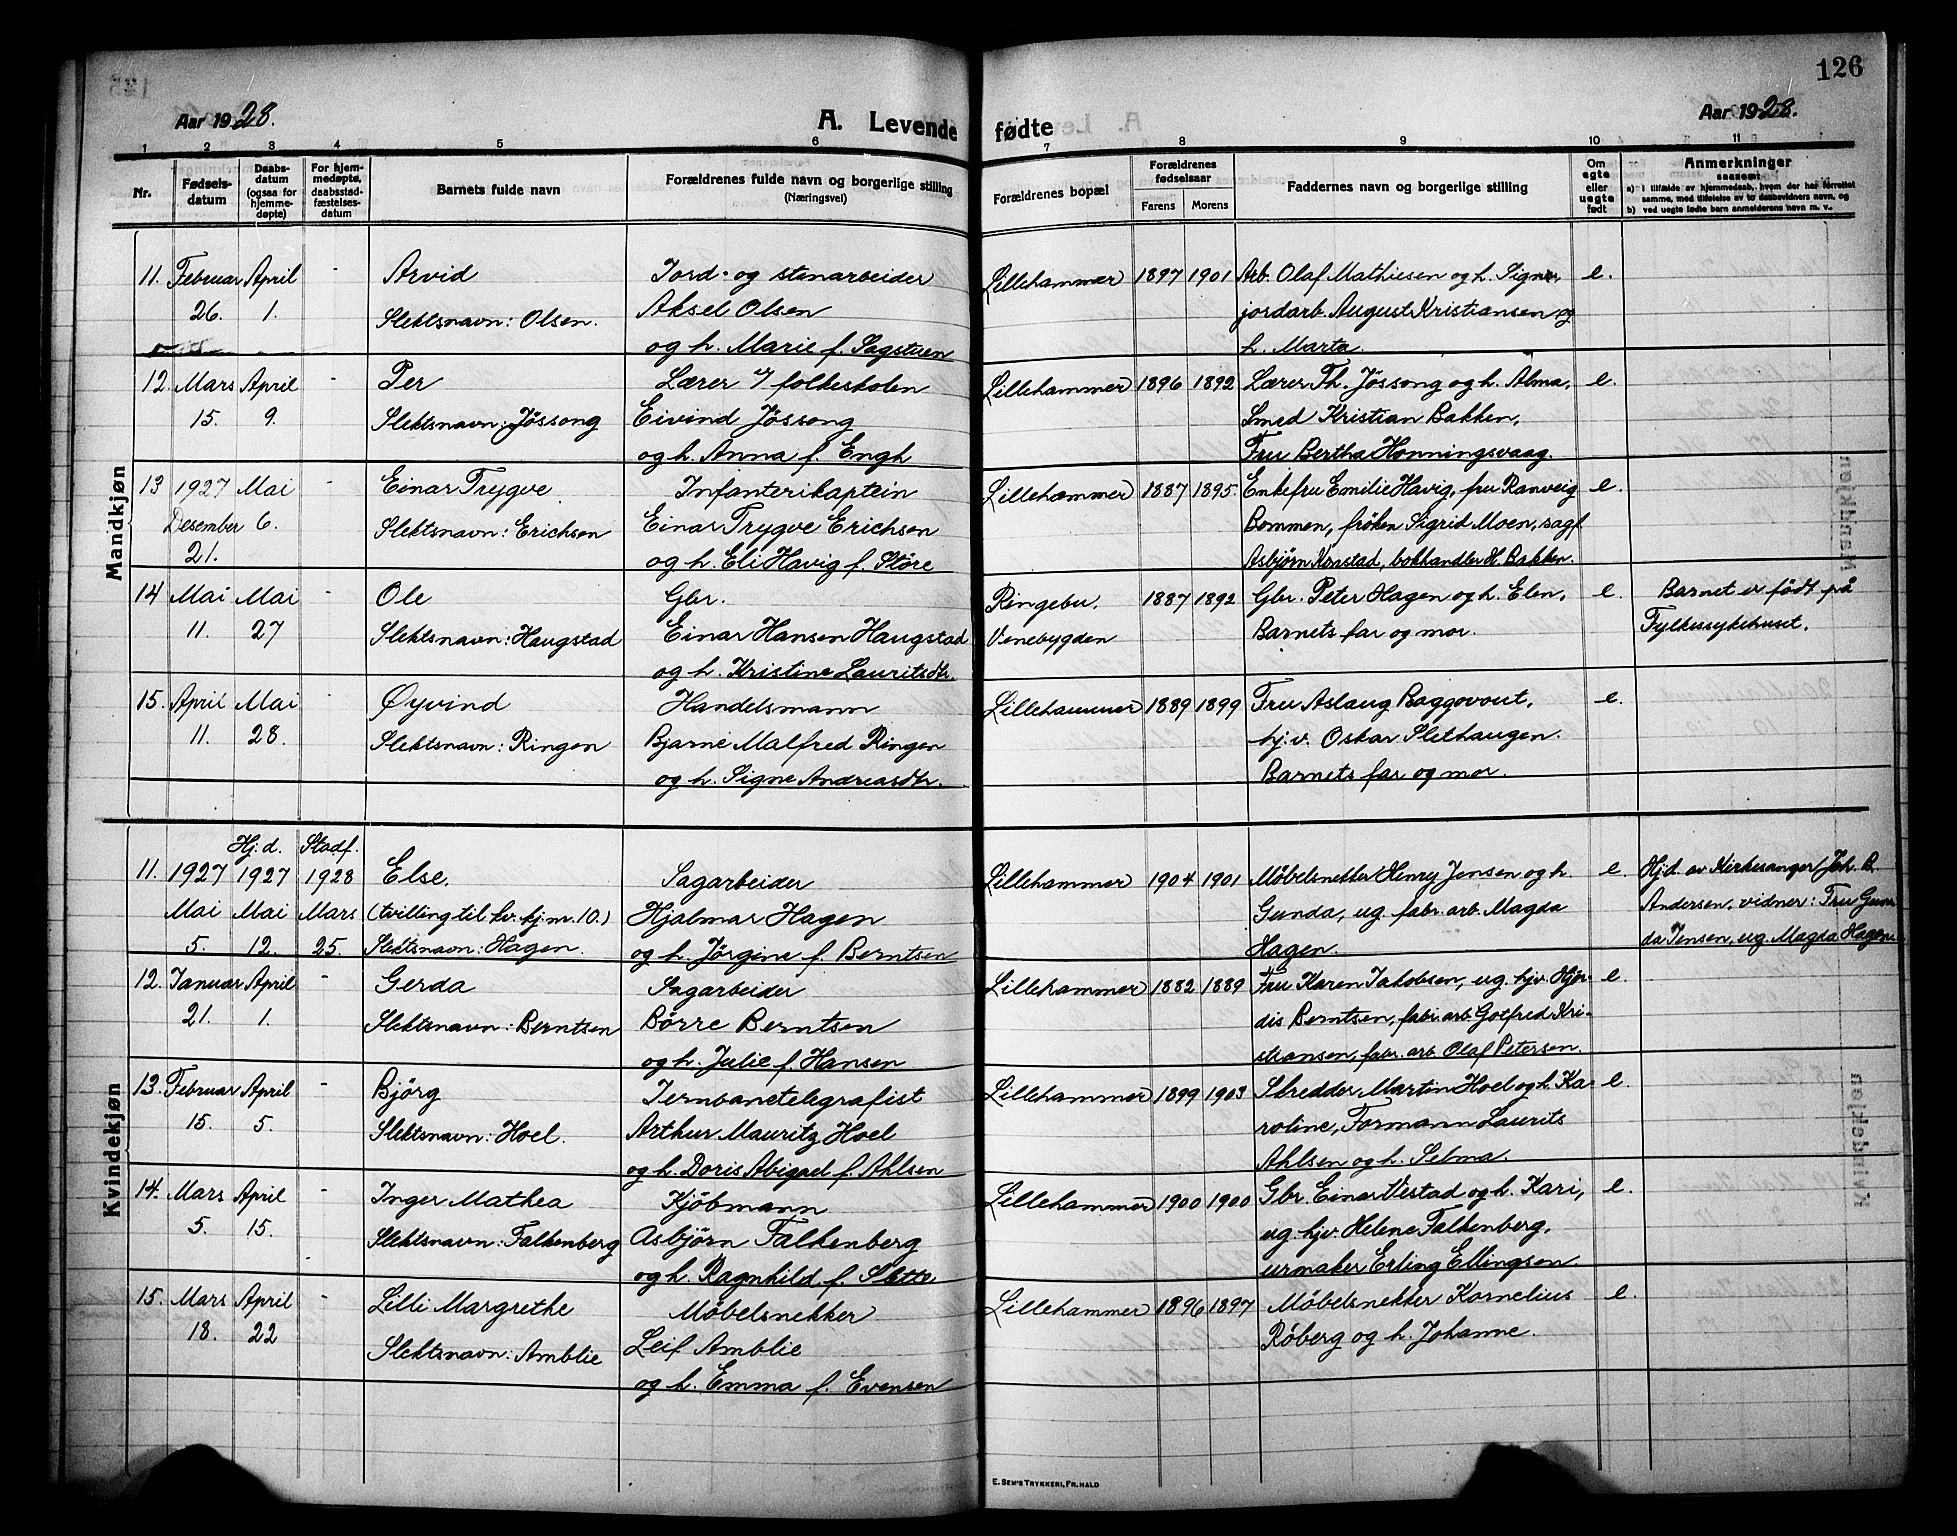 126
Aar 1928.
A. Levende fødte
Aar 1928.
1 2 3 4 5 6 7 8 9 10 11
Nr.
Fødsels-
datum
Daabs-
datum
(ogsaa for
hjemme-
døpte)
For hjem-
medøpte,
daabsstad-
fæstelses-
datum
Barnets fulde navn
Forældrenes fulde navn og borgerlige stilling
(Næringsvei)
Forældrenes bopæl
Forældrenes
fødselsaar
Farens Morens
Faddernes navn og borgerlige stilling
Om
egte
eller
uegte
født
Anmerkninger
saasom:
a) i tilfælde av hjemmedaab, hvem der har forrettet
samme, med tilføielse av to daabsvidners navn, og
b) ved uegte fødte barn anmelderens navn m. v..
Mandkjøn
11. Februar April - Arvid Jord- og stenarbeider Lillehammer 1897 1901 Arb. Olaf Mathiesen og h. Signe, e.
26. 1. Slektsnavn: Olsen. Aksel Olsen jordarb. August Kristiansen og
og h. Marie f. Sagstuen h. Marta.
12. Mars April - Per Lærer v/ folkeskolen Lillehammer 1896 1892 Lærer Th. Jøssong og h. Alma, e.
15. 9. Slektsnavn: Jøssong Eivind Jøssong Smed Kristian Bakken,
og h. Anna f. Engh Fru Bertha Honningsvaag.
13 1927 Mai - Einar Trygve Infanterikaptein Lillehammer 1887 1895. Enkefru Emilie Havig, fru Ranveig e.
Desember 6. Slektsnavn: Erichsen Einar Trygve Erichsen Bommen, frøken Sigrid Moen, sagf.
21. og h. Eli Havig f. Støre Asbjørn Konstad, bokhandler H. Bakken.
14 Mai Mai - Ole Gbr. Ringebu. 1887 1892 Gbr. Peter Hagen og h. Elen, e. Barnet er født på
11. 27 Slektsnavn: Haugstad Einar Hansen Haugstad Venebygden Barnets far og mor. Fylkessykehuset.
og h. Kristine Lauritsdtr.
15. April Mai - Øyvind Handelsmann Lillehammer 1889 1899 Fru Aslaug Baggovout, e.
11. 28. Slektsnavn: Ringen Bjarne Malfred Ringen hj.v. Oskar Slethaugen.
og h. Signe Andreasdtr. Barnets far og mor.
Kvindekjøn
Hj.d. Stadf.
11. 1927 1927 1928 Else. Sagarbeider Lillehammer 1904 1901 Møbelsnekker Henry Jensen og h. e. Hjd. av Kirkesanger Joh. B.
Mai Mai Mars (tvilling til kv. kj. nr. 10.) Hjalmar Hagen Gunda, ug. fabr. arb. Magda Andersen, vidner: Fru Gun-
5. 12. 25. Slektsnavn: Hagen. og h. Jørgine f. Berntsen Hagen. da Jensen, ug. Magda Hagen.
12. Januar April - Gerda Sagarbeider Lillehammer 1882 1889 Fru Karen Jakobsen, ug. hjv. Hjør- e.
21. 1. Slektsnavn: Berntsen Børre Berntsen dis Berntsen, fabr. arb. Gotfred Kri-
og h. Julie f. Hansen stiansen, fabr. arb. Olaf Petersen.
13. Februar April - Bjørg Jernbanetelegrafist Lillehammer 1899 1903 Skredder Martin Hoel og h. Ka- e.
15. 5. Slektsnavn: Hoel. Arthur Mauritz Hoel roline, Formann Laurits
og h. Doris Abigael f. Ahlsen Ahlsen og h. Selma.
14. Mars April - Inger Mathea Kjøbmann Lillehammer 1900 1900 Gbr. Einar Vestad og h. Kari, e.
5. 15. Slektsnavn: Falkenberg Asbjørn Falkenberg ug. hjv. Helene Falkenberg,
og h. Ragnhild f. Slette urmaker Erling Ellingsen
15. Mars April - Lilli Margrethe Møbelsnekker Lillehammer 1896 1897 Møbelsnekker Kornelius e.
18. 22 Slektsnavn: Amblie Leif Amblie Røberg og h. Johanne.
og h. Emma f. Evensen
E. SEM'S TRYKKERI, FR.HALD